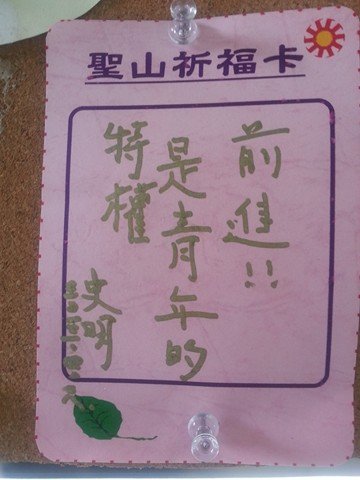 聖山祈福卡
前進!!
是青年的
特權
史明